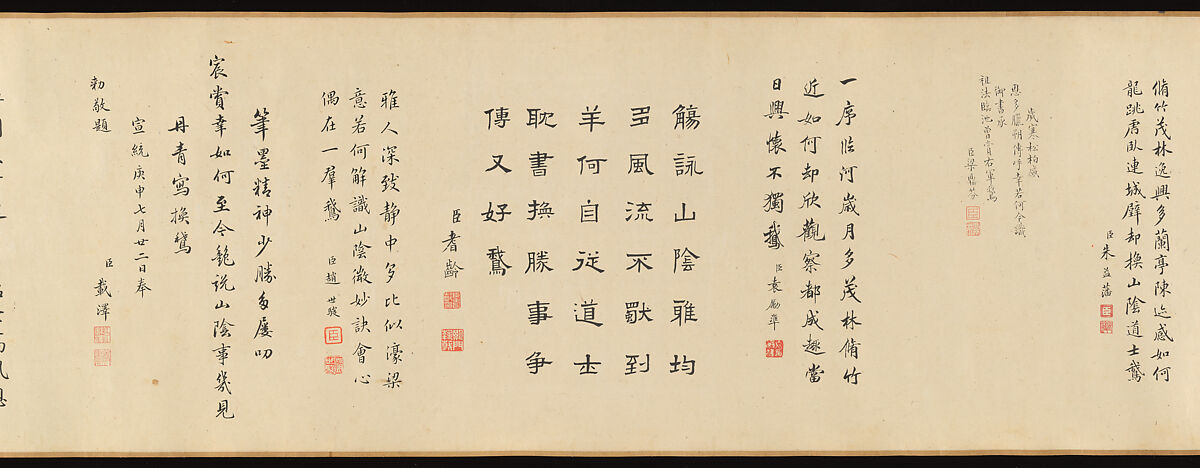 脩竹茂林逸興多蘭亭陳迹感如何
龍跳虎臥連城璧却換山陰道士鵞
臣朱益藩
歲寒松柏盛
恩多臘朔傳呼幸若何今識
御書承
祖法臨池曾賞右軍鵞
臣梁鼎芬
一序臨河歲月多茂林脩竹
近如何却欣觀察都成趣當
日興懷不獨鵞 臣袁勵準
觴詠山陰雅均
多風流不歇到
羊何自從道士
耽書換勝事爭
傳又好鵞
臣耆齡
雅人深致静中多比似濠梁
意若何解識山陰微妙訣會心
偶在一羣鵞 臣趙世駿
筆墨精神少勝多屢叨
宸賞幸如何至今艷說山陰事幾見
丹青寫換鵞
宣統庚申七月廿二日奉
勅敬題 臣載澤